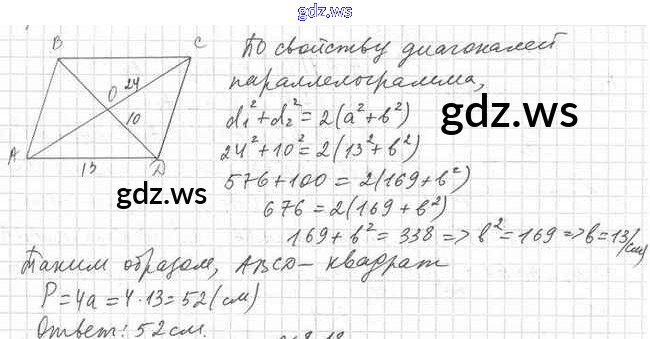 gdz.ws
B C
По свойству диагоналей
параллелограмма,
O 24
10
d₁² + d₂² = 2(a² + b²)
gdz.ws
A 13 D
24² + 10² = 2(13² + b²)
gdz.ws
576 + 100 = 2(169 + b²)
676 = 2(169 + b²)
169 + b² = 338 => b² = 169 => b = 13 (см)
Таким образом, ABCD – квадрат
P = 4a = 4·13 = 52 (см)
Ответ: 52 см.